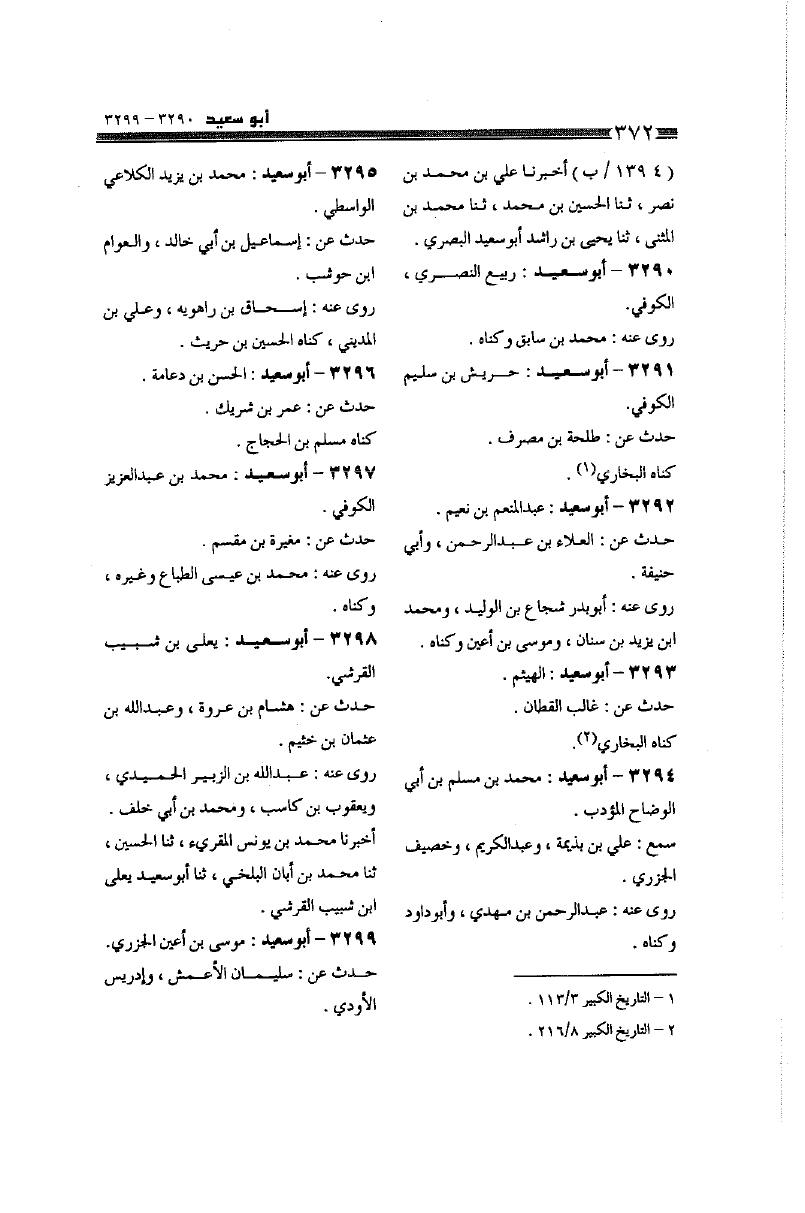 أبو سعيد ٣٢٩٠ – ٣٢٩٩
٣٧٢
( ١٣٩٤ / ب ) أخبرنا علي بن محمد بن
نصر ، ثنا الحسين بن محمد ، ثنا محمد بن
المثنى ، ثنا يحيى بن راشد أبو سعيد البصري .
٣٢٩٠ – أبو سعيد : ربيع النصري ،
الكوفي.
روى عنه : محمد بن سابق وكناه .
٣٢٩١ – أبو سعيد : حريش بن سليم
الكوفي.
حدث عن : طلحة بن مصرف .
كناه البخاري(١) .
٣٢٩٢ – أبو سعيد : عبدالمنعم بن نعيم .
حدث عن : العلاء بن عبدالرحمن ، وأبي
حنيفة .
روى عنه : أبوبدر شجاع بن الوليد ، ومحمد
ابن يزيد بن سنان ، وموسى بن أعين وكناه .
٣٢٩٣ – أبو سعيد : الهيثم .
حدث عن : غالب القطان .
كناه البخاري(٢).
٣٢٩٤ – أبو سعيد : محمد بن مسلم بن أبي
الوضاح المؤدب .
سمع : علي بن بذيمة ، وعبدالكريم ، وخصيف
الجزري .
روى عنه : عبدالرحمن بن مهدي ، وأبوداود
وكناه .
١ – التاريخ الكبير ١١٣/٣ .
٢ – التاريخ الكبير ٢١٦/٨ .
٣٢٩٥ – أبو سعيد : محمد بن يزيد الكلاعي
الواسطي .
حدث عن : إسماعيل بن أبي خالد ، والعوام
ابن حوشب .
روى عنه : إسحاق بن راهويه ، وعلي بن
المديني ، كناه الحسين بن حريث .
٣٢٩٦ – أبو سعيد : الحسن بن دعامة .
حدث عن : عمر بن شريك .
كناه مسلم بن الحجاج .
٣٢٩٧ – أبو سعيد : محمد بن عبدالعزيز
الكوفي .
حدث عن : مغيرة بن مقسم .
روى عنه : محمد بن عيسى الطباع وغيره ،
وكناه .
٣٢٩٨ – أبو سعيد : يعلى بن شبيب
القرشي.
حدث عن : هشام بن عروة ، وعبدالله بن
عثمان بن خثيم .
روى عنه : عبدالله بن الزبير الحميدي ،
ويعقوب بن كاسب ، ومحمد بن أبي خلف .
أخبرنا محمد بن يونس المقريء ، ثنا الحسين ،
ثنا محمد بن أبان البلخي ، ثنا أبو سعيد يعلى
ابن شبيب القرشي .
٣٢٩٩ – أبو سعيد : موسى بن أعين الجزري.
حدث عن : سليمان الأعمش ، وإدريس
الأودي .